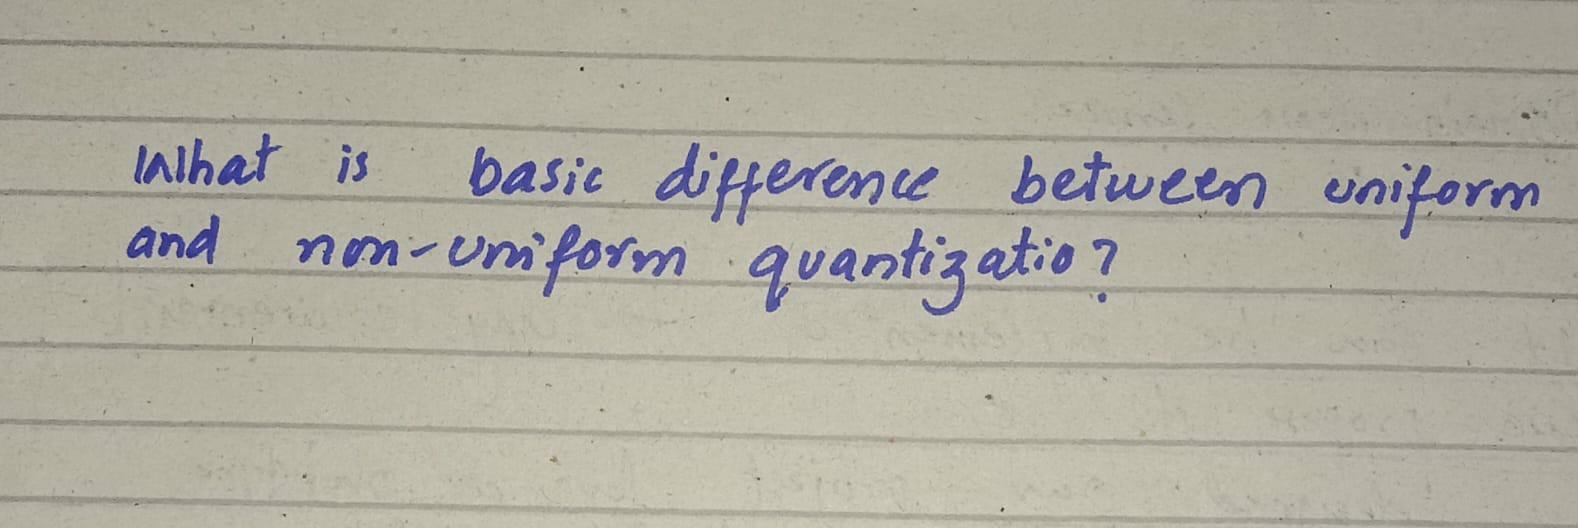 What is basic difference between uniform
and non-uniform quantizatio?